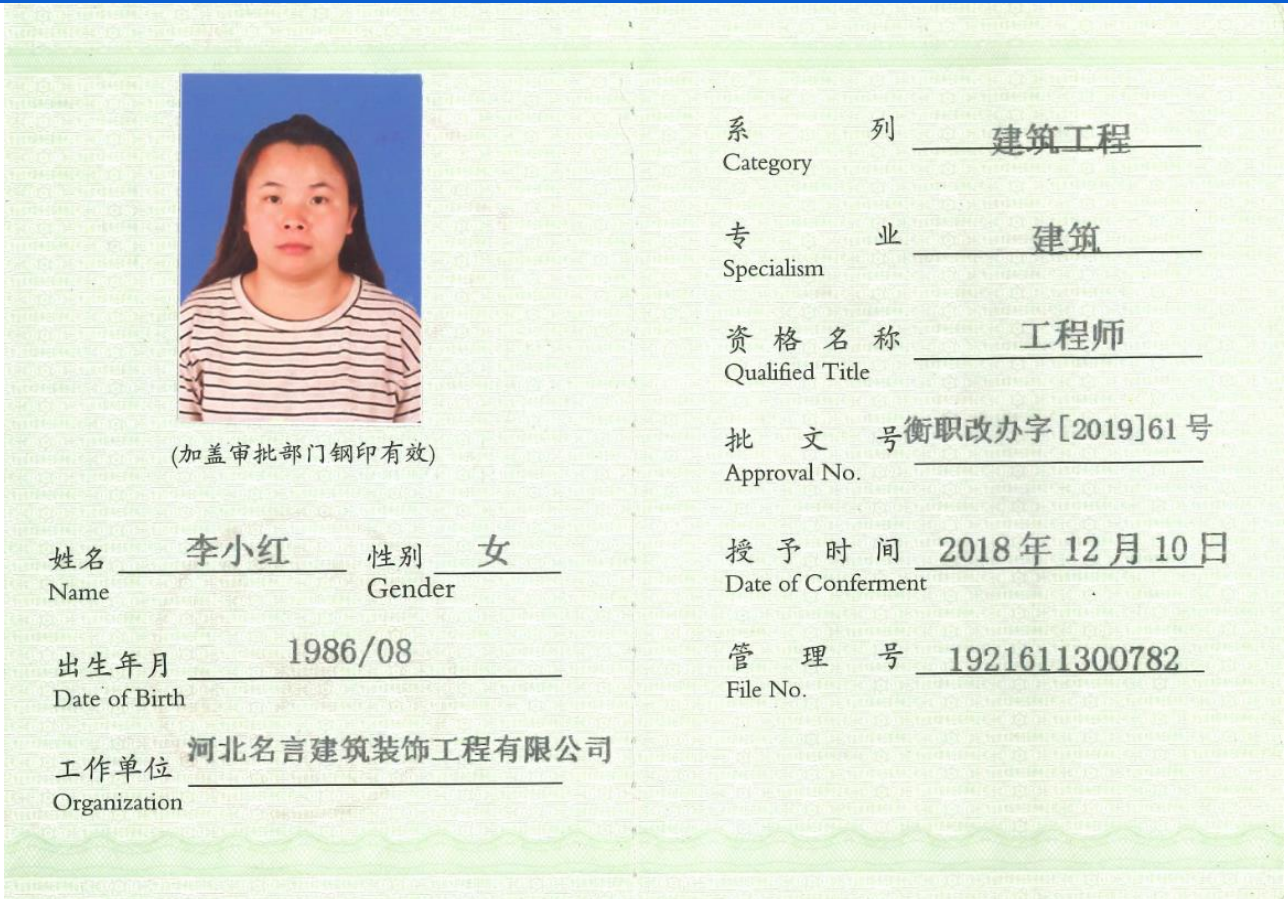 (加盖审批部门钢印有效)
姓名 李小红 性别 女
Name Gender
出生年月 1986/08
Date of Birth
工作单位 河北名言建筑装饰工程有限公司
Organization
系列 建筑工程
Category
专业 建筑
Specialism
资格名称 工程师
Qualified Title
批文号 衡职改办字[2019]61号
Approval No.
授予时间 2018年12月10日
Date of Conferment
管理号 1921611300782
File No.